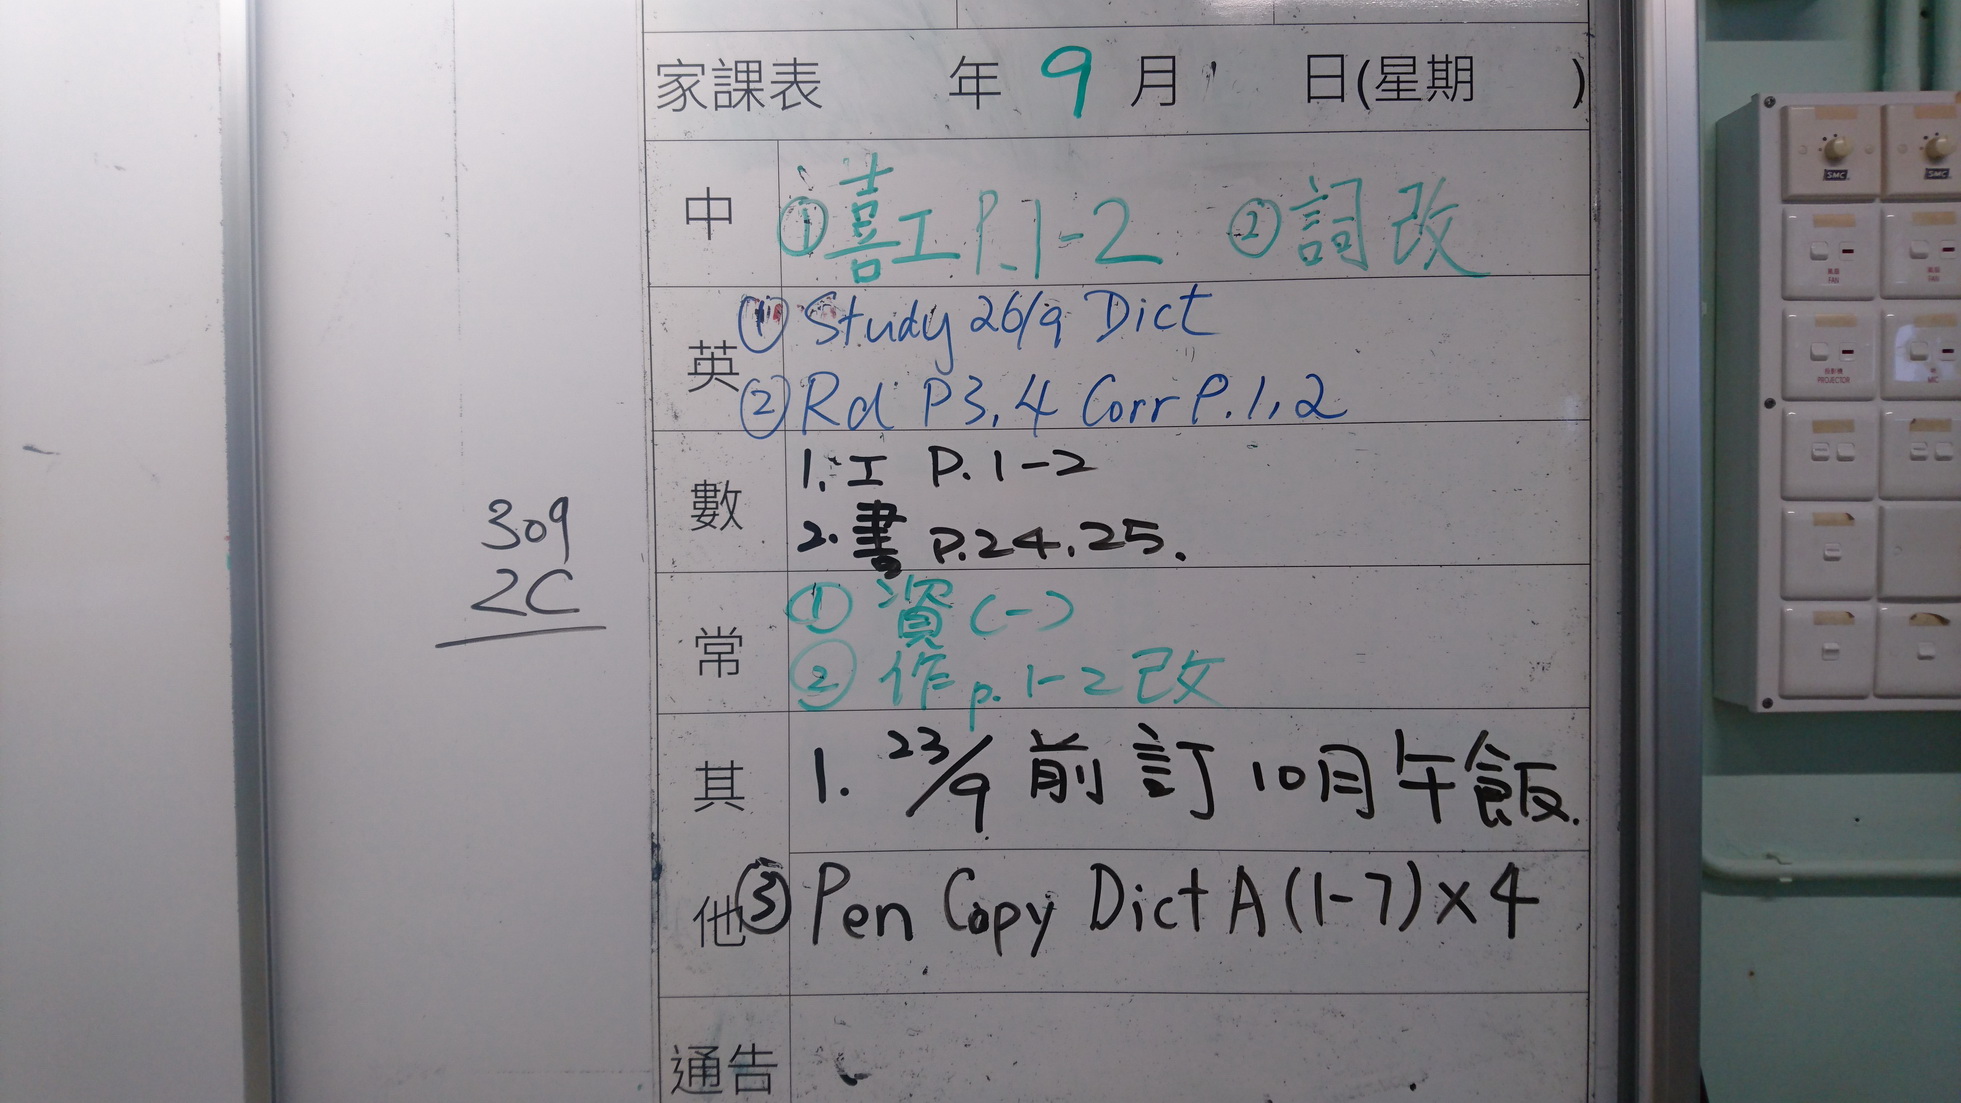 家課表 年 9 月 日(星期 )
中 ①喜工 P.1-2 ②詞改
英 ① Study 26/9 Dict
② Rd P3,4 Corr P.1,2
數 1. 工 P.1-2
2. 書 P.24,25.
常 ① 資(一)
② 作 p.1-2 改
其他 1. 23/9 前訂 10月午飯.
③ Pen Copy Dict A (1-7) x 4
通告
309
2C
SMC
SMC
風扇
FAN
風扇
FAN
投影機
PROJECTOR
MIC